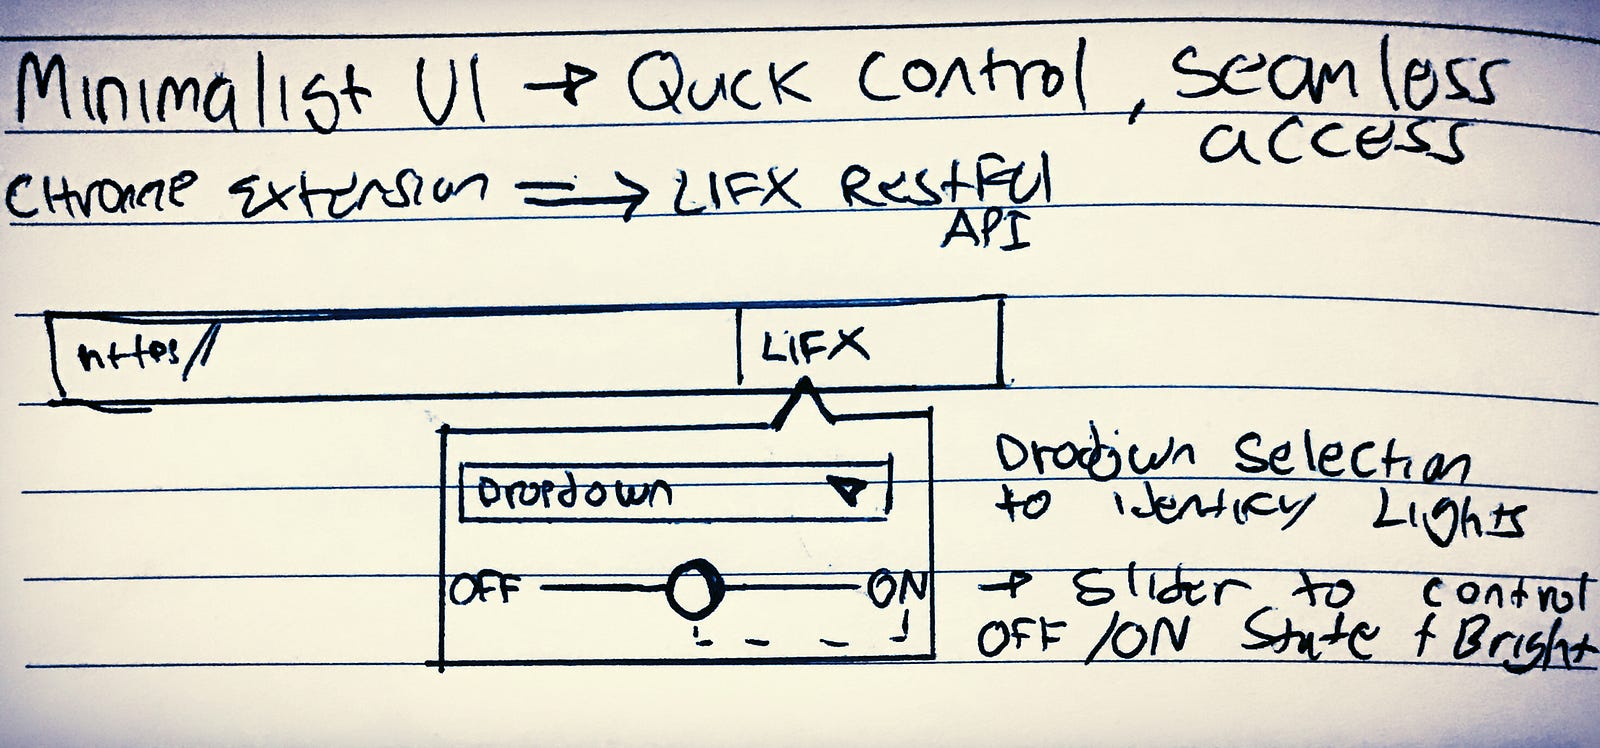 Minimalist UI → Quck Control, Seamless
access
CHrome Extension ⇒ LIFX RestFul
API
https//
LIFX
Dropdown
Selection
to identify Lights
OFF
ON
→ Slider to control
OFF/ON State + Bright